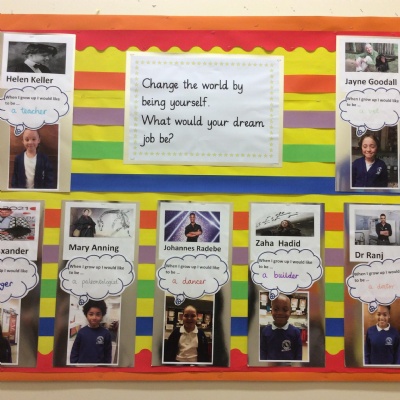 Helen Keller
When I grow up I would like
to be ...
a teacher
Change the world by
being yourself.
What would your dream
job be?
Jayne Goodall
When I grow up I would like
to be ...
xander
grow up I would like
Mary Anning
When I grow up I would like
to be ...
a paleontologist
Johannes Radebe
When I grow up I would like
to be ...
a dancer
Zaha Hadid
When I grow up I would like
to be ...
a builder
Dr Ranj
When I grow up I would like
to be ...
a doctor